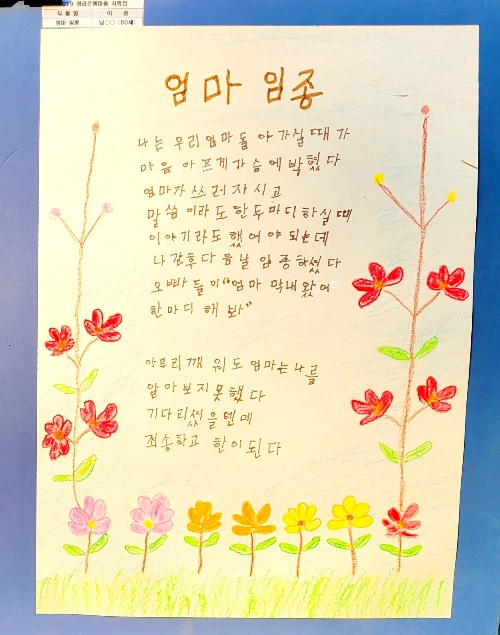 2019 청라은행마을 시화전
작 품 명 이 름
엄마 임종 남○○ (80세)
엄마 임종
나는 우리엄마 돌아가실때가
마음 아프게 가슴에 박혔다
엄마가 쓰러지시고
말씀이라도 한두마디 하실때
이야기라도 했어야 되는데
나간후 다음날 임종하셨다
오빠들이 "엄마 막내왔어
한마디 해 봐"
아무리 깨워도 엄마는 나를
알아보지 못했다
기다리셨을텐데
죄송하고 한이된다